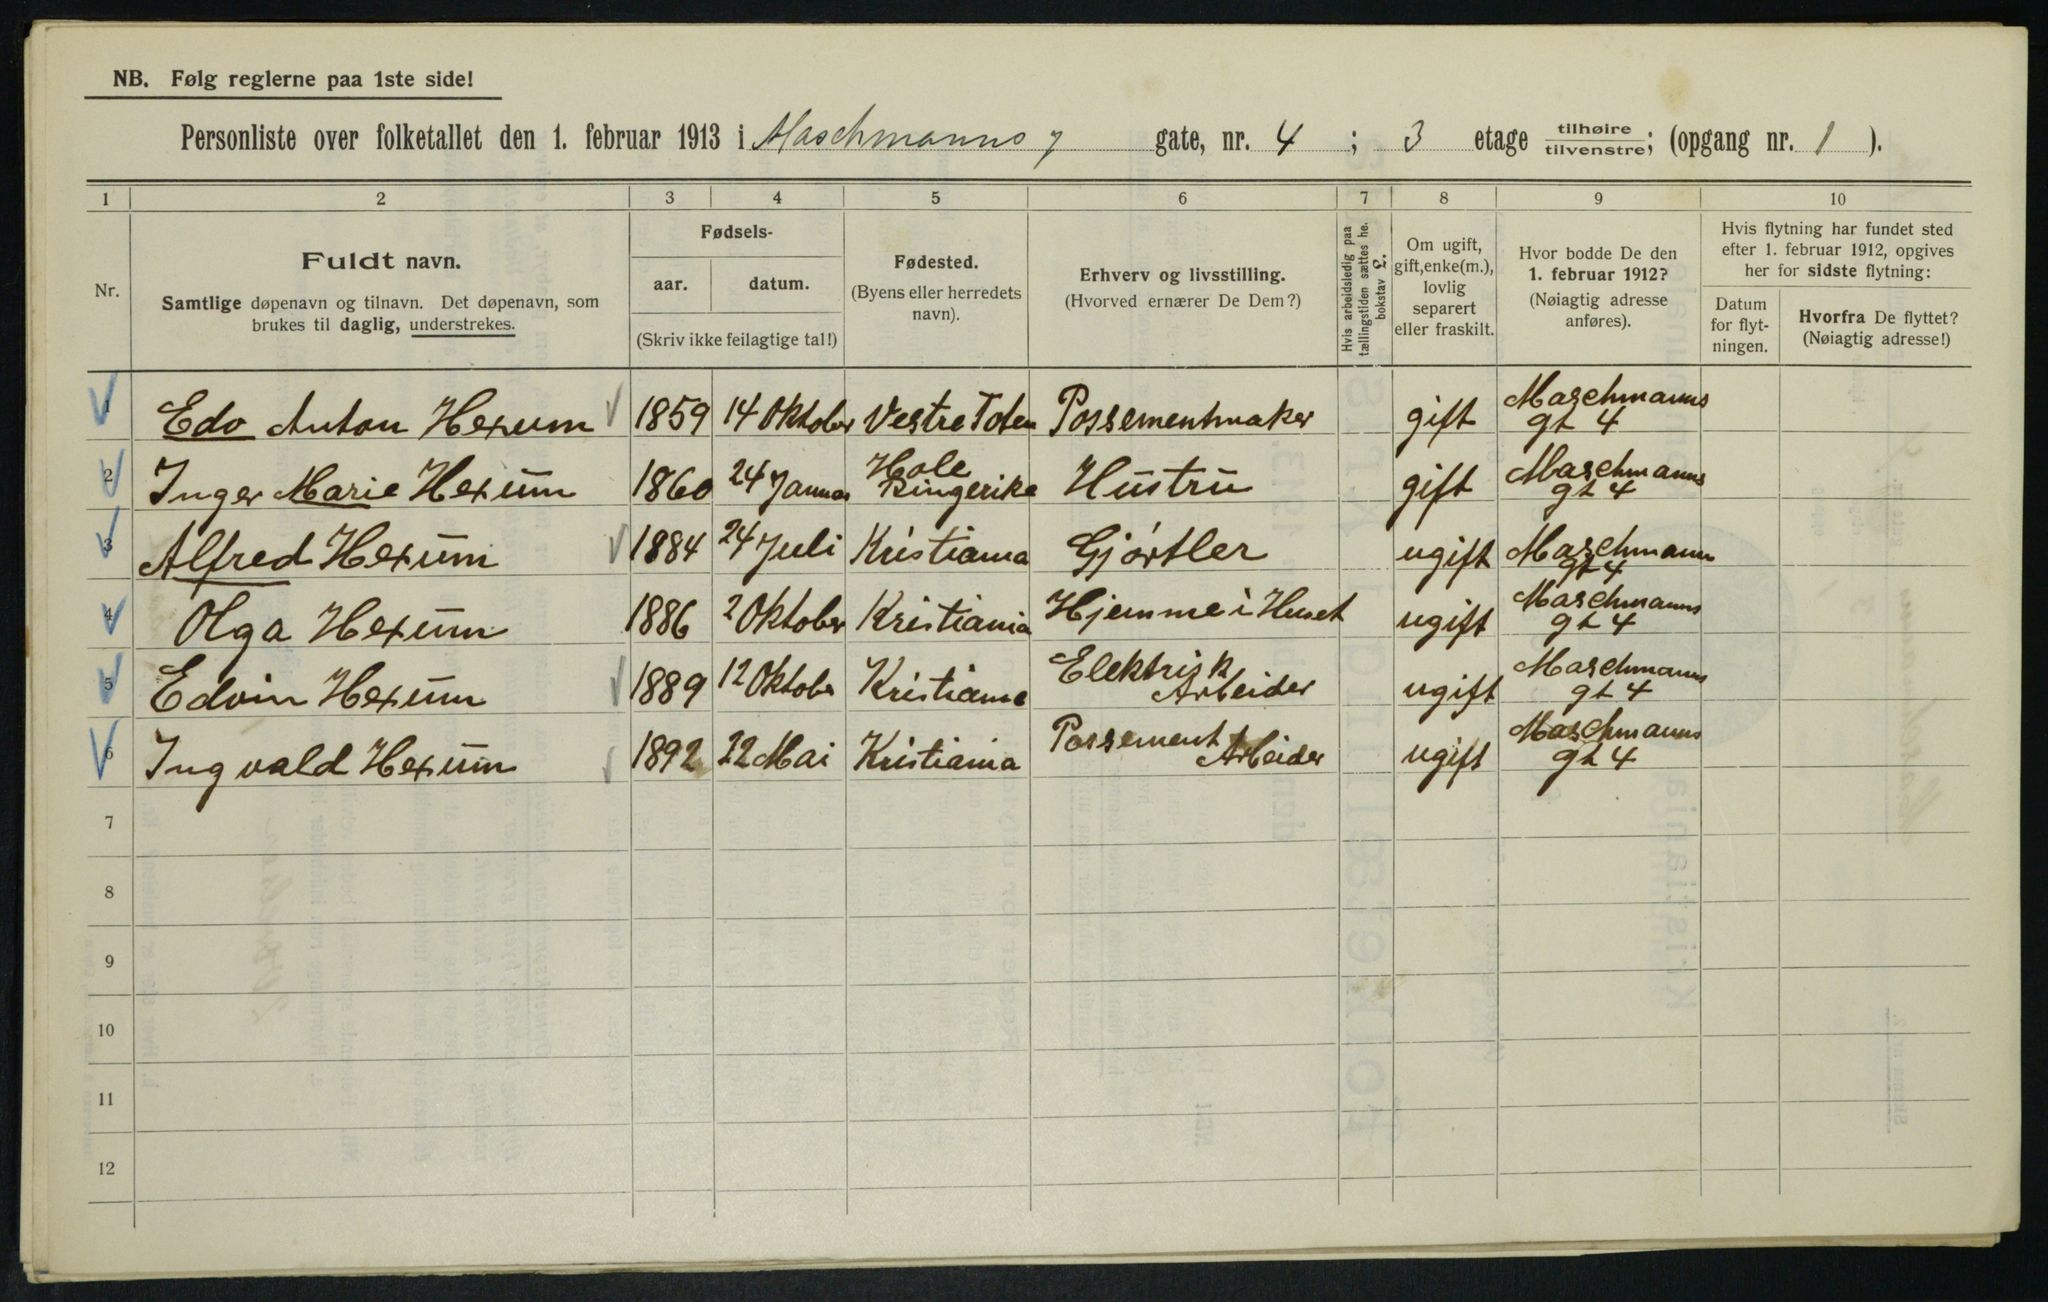 NB. Følg reglerne paa 1ste side!
Personliste over folketallet den 1. februar 1913 i Maschmanns gate, nr. 4 ; 3 etage tilhøire tilvenstre; (opgang nr. 1 ).
1 2 3 4 5 6 7 8 9 10
Nr.
Fuldt navn.
Samtlige døpenavn og tilnavn. Det døpenavn, som
brukes til daglig, understrekes.
Fødsels-
aar. datum.
(Skriv ikke feilagtige tal!)
Fødested.
(Byens eller herredets
navn).
Erhverv og livsstilling.
(Hvorved ernærer De Dem?)
Hvis arbeidsledig paa
tællingstiden sættes he.
bokstav L.
Om ugift,
gift, enke(m.),
lovlig
separert
eller fraskilt.
Hvor bodde De den
1. februar 1912?
(Nøiagtig adresse
anføres).
Hvis flytning har fundet sted
efter 1. februar 1912, opgives
her for sidste flytning:
Datum
for flyt-
ningen.
Hvorfra De flyttet?
(Nøiagtig adresse!)
1 Edo Anton Hexum 1859 14 Oktober Vestre Toten Possementmaker gift Maschmanns gt 4
2 Inger Marie Hexum 1860 24 Januar Hole Ringerike Hustru gift Maschmanns gt 4
3 Alfred Hexum 1884 24 Juli Kristiania Gjørtler ugift Maschmann gt 4
4 Olga Hexum 1886 2 Oktober Kristiania Hjemme i Huset ugift Maschmanns gt 4
5 Edvin Hexum 1889 12 Oktober Kristiania Elektrisk Arbeider ugift Maschmanns gt 4
6 Ingvald Hexum 1892 22 Mai Kristiania Possement Arbeider ugift Maschmanns gt 4
7
8
9
10
11
12